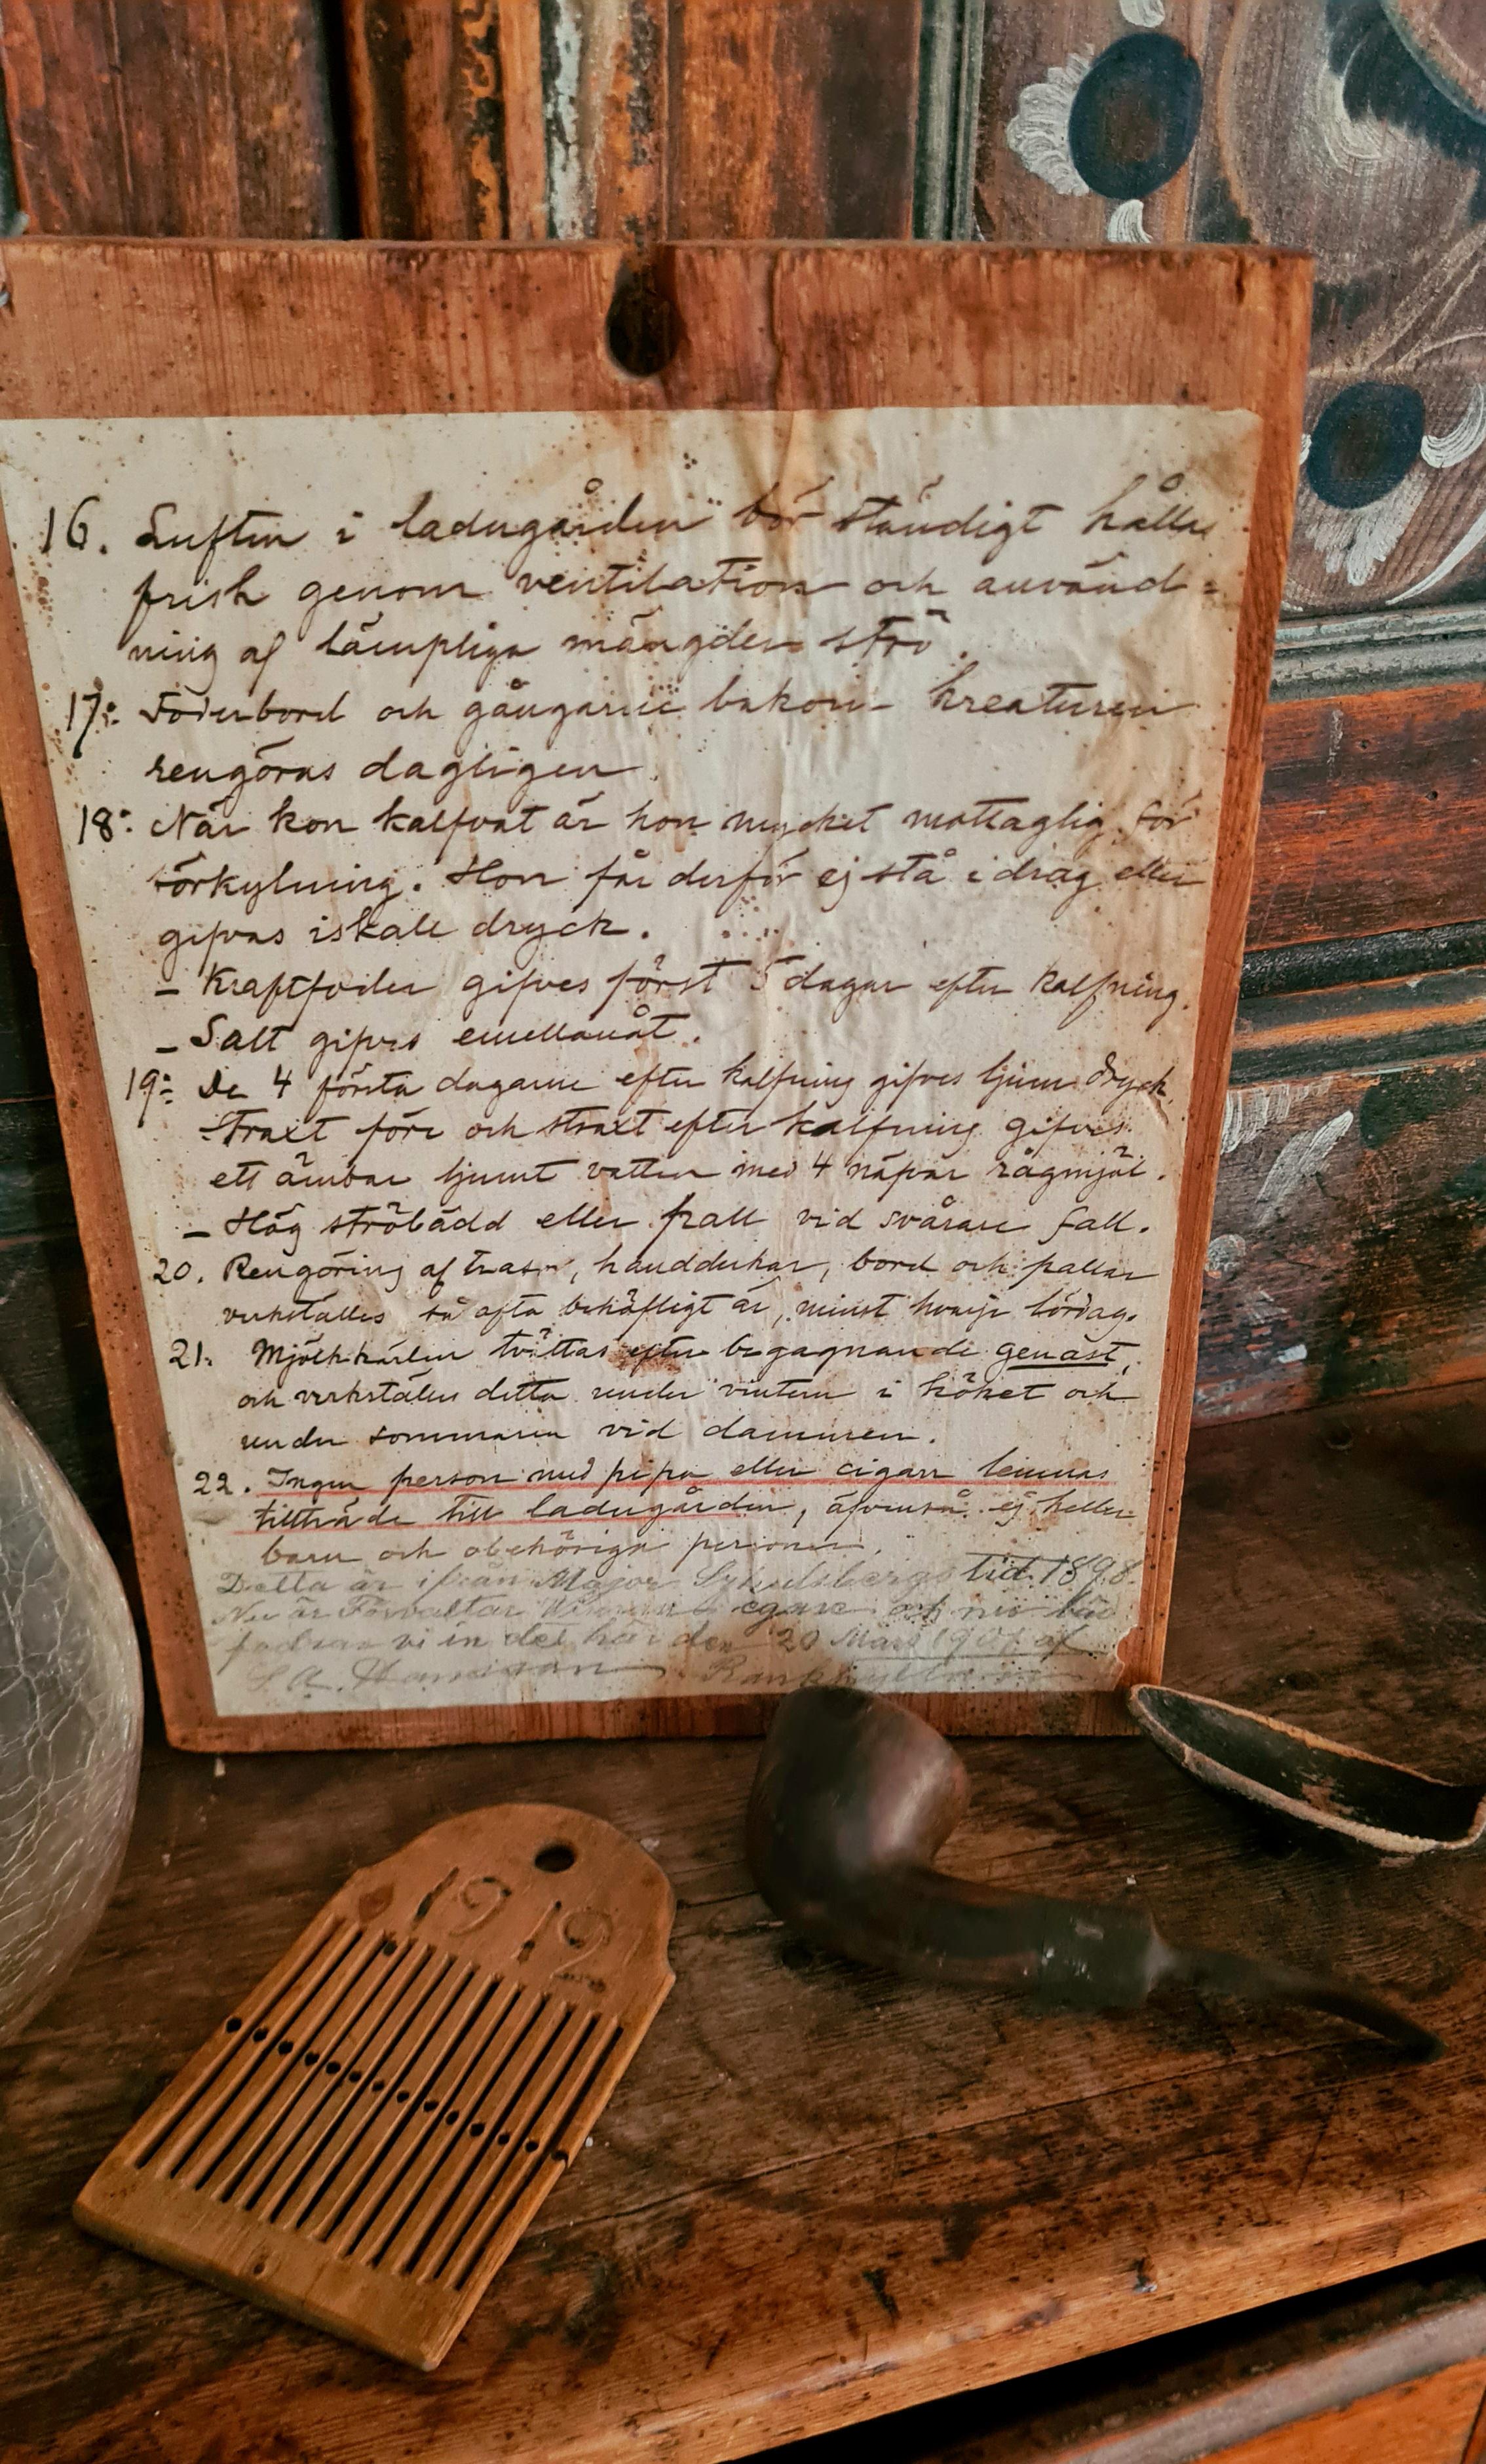 16. Luften i ladugården bör ständigt hållas
frisk genom ventilation och använd=
ning af lämpliga mängder strö.
17: Foderbord och gångarne bakom kreaturen
rengöras dagligen.
18: När kon kalfvat är hon mycket mottaglig för
förkylning. Hon får derför ej stå i drag eller
gifvas iskall dryck.
– Kraftfoder gifves först 5 dagar efter kalfning.
– Salt gifves emellanåt.
19: De 4 första dagarne efter kalfning gifves ljum dryck.
Straxt före och straxt efter kalfning gifves
ett ämbar ljumt vatten med 4 näfvar rågmjöl.
– Hög ströbädd eller pall vid svårare fall.
20. Rengöring af trasor, handdukar, bord och pallar
verkställes så ofta behöfligt är, minst hvarje lördag.
21. Mjölkkärlen tvättas efter begagnande genast,
och verkställes detta under vintern i köket och
under sommaren vid dammen.
22. Ingen person med pipa eller cigarr lemnas
tillträde till ladugården, äfvenså ej heller
barn och obehöriga personer.
Detta är ifrån Major tid 1898.
Nu är Förvaltar egare och nu
vi in det här den 20 Mars af
1912